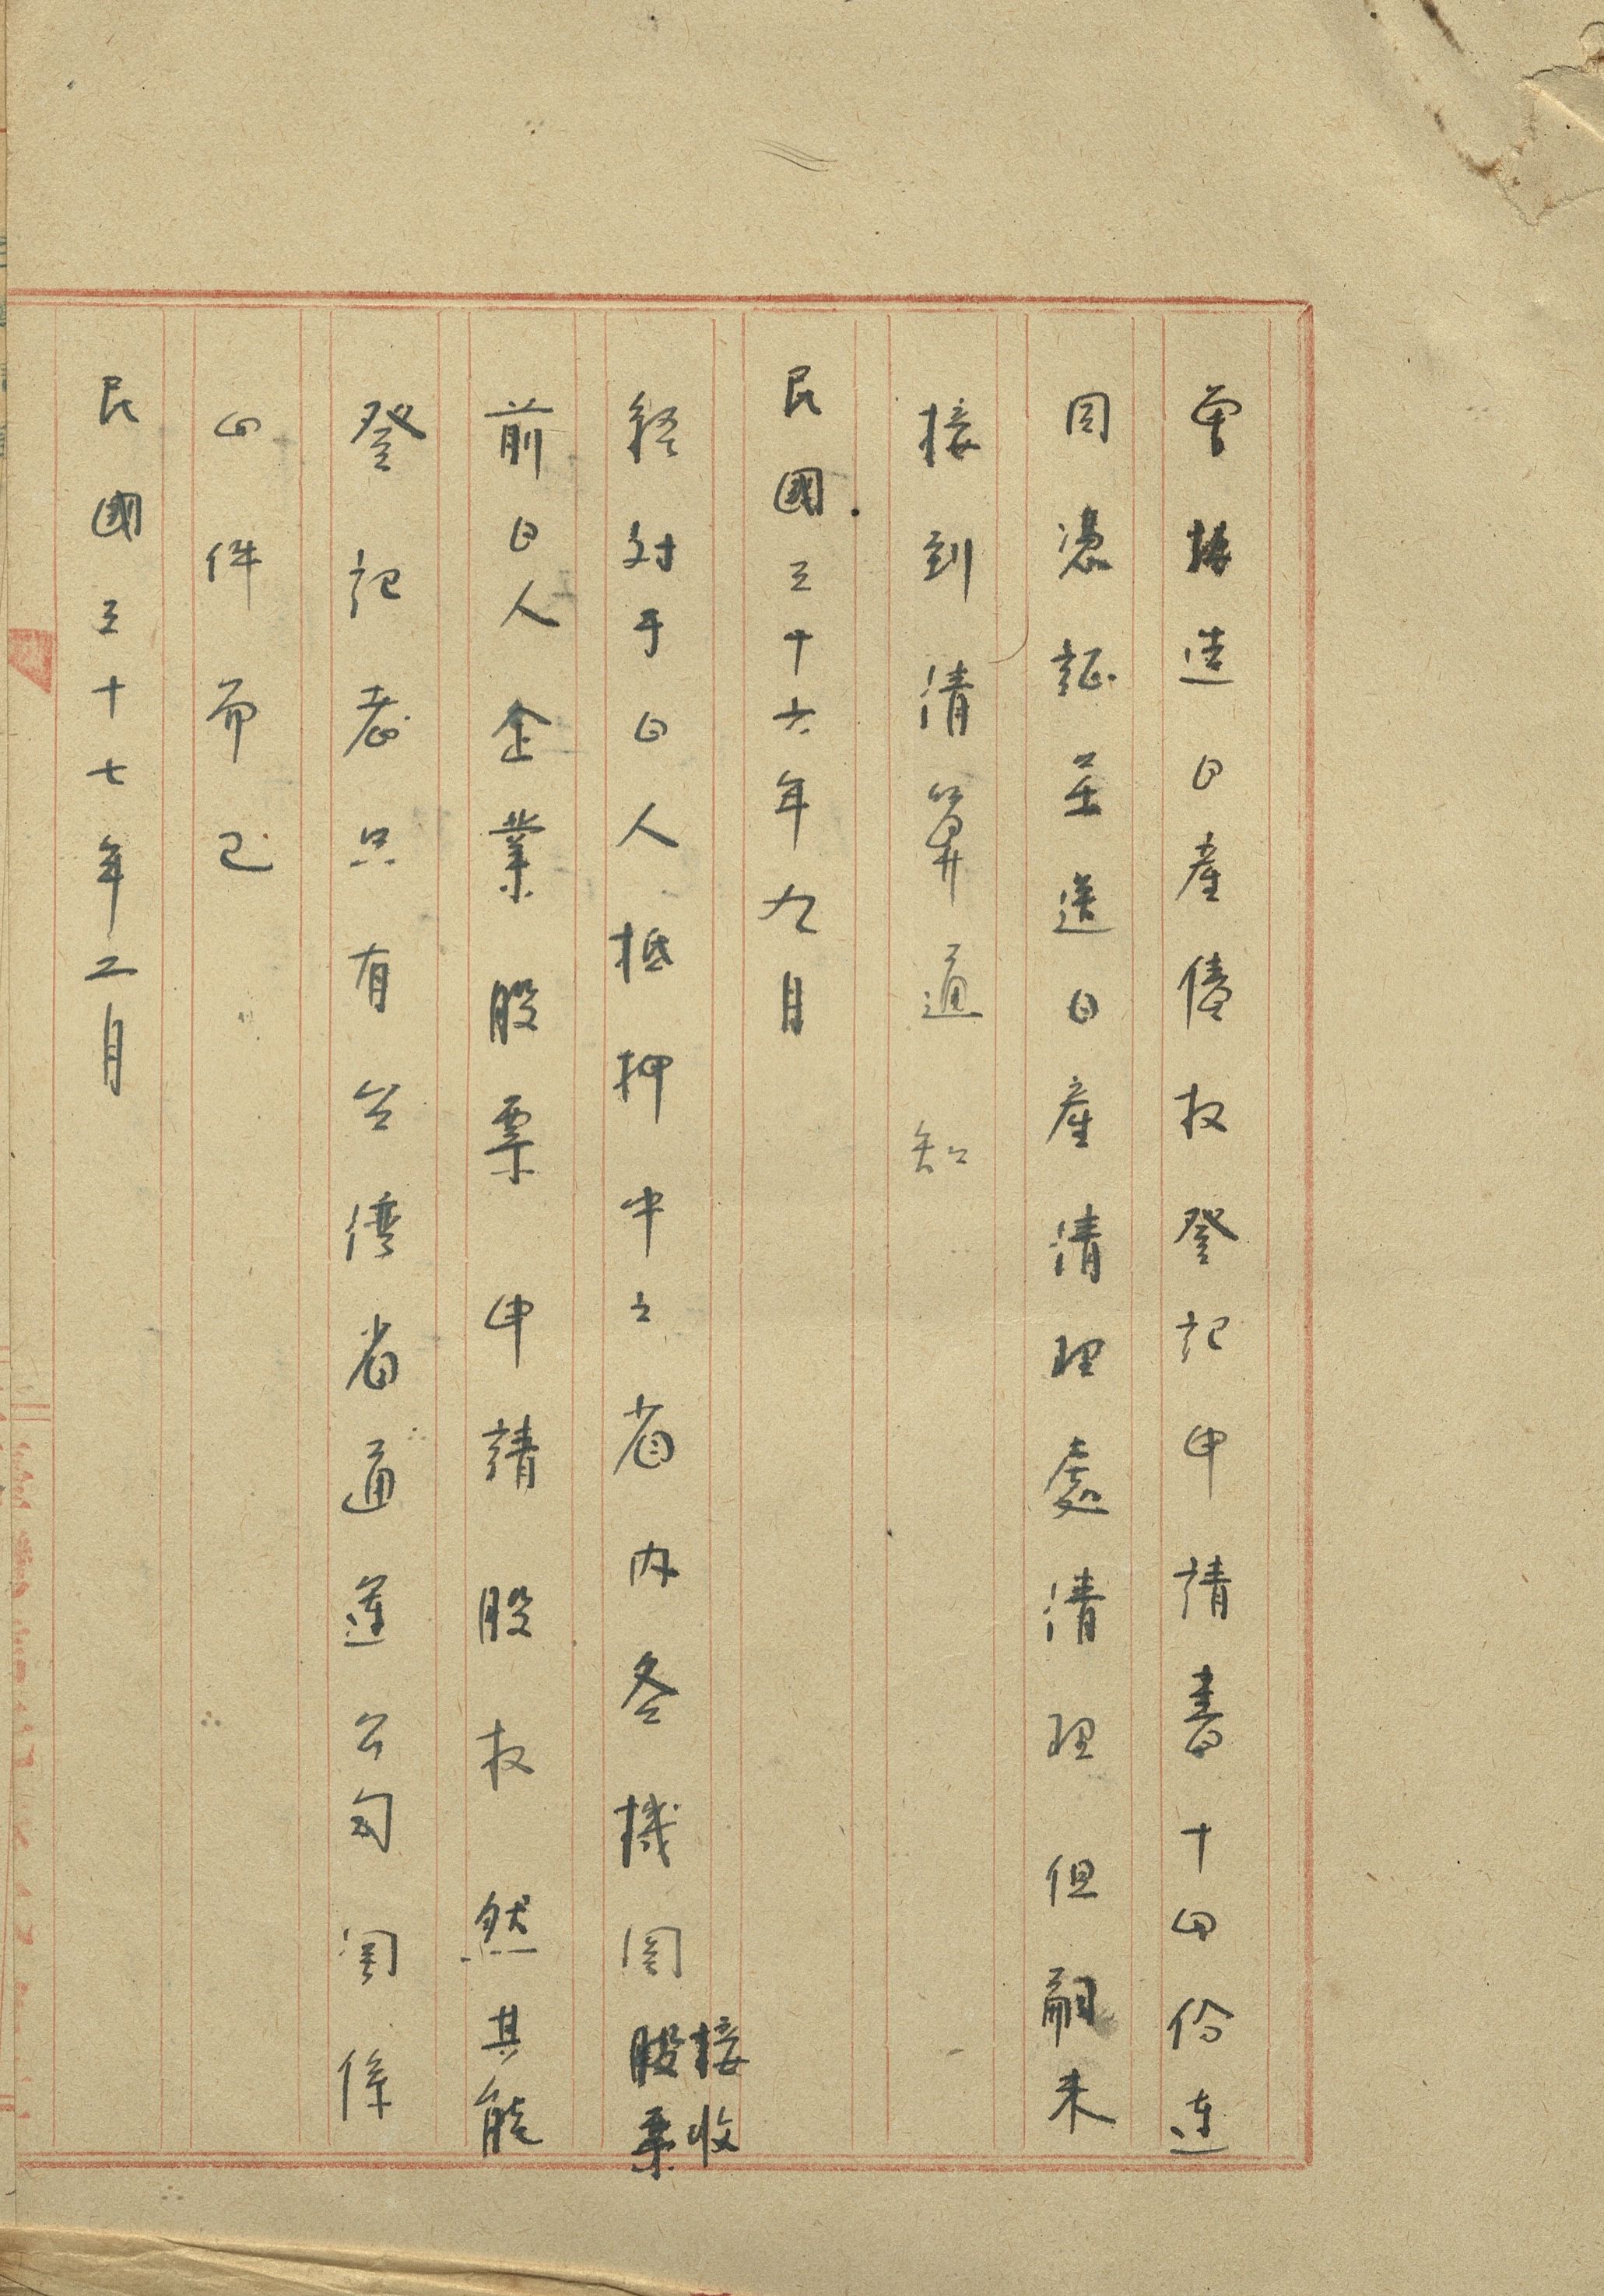 曾造日產債权登記申請書十四份連
同憑証呈送日產清理處清理但嗣未
接到清算通知
民國三十六年九月
経対于日人抵押中之省内各機関股票
接收
前日人企業股票申請股权然其能
登記者只有台湾省通運公司関係
四件而已
民國三十七年二月